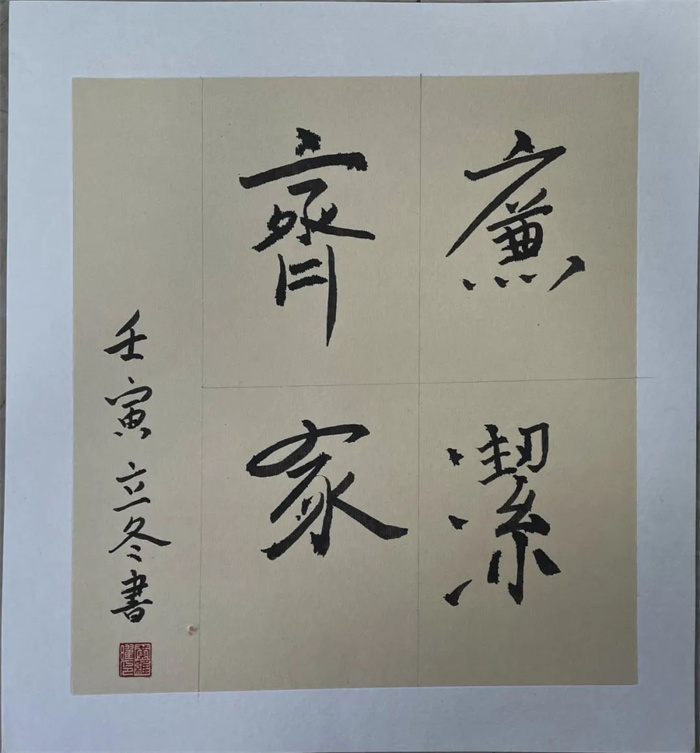 廉潔
齊家
壬寅立冬書